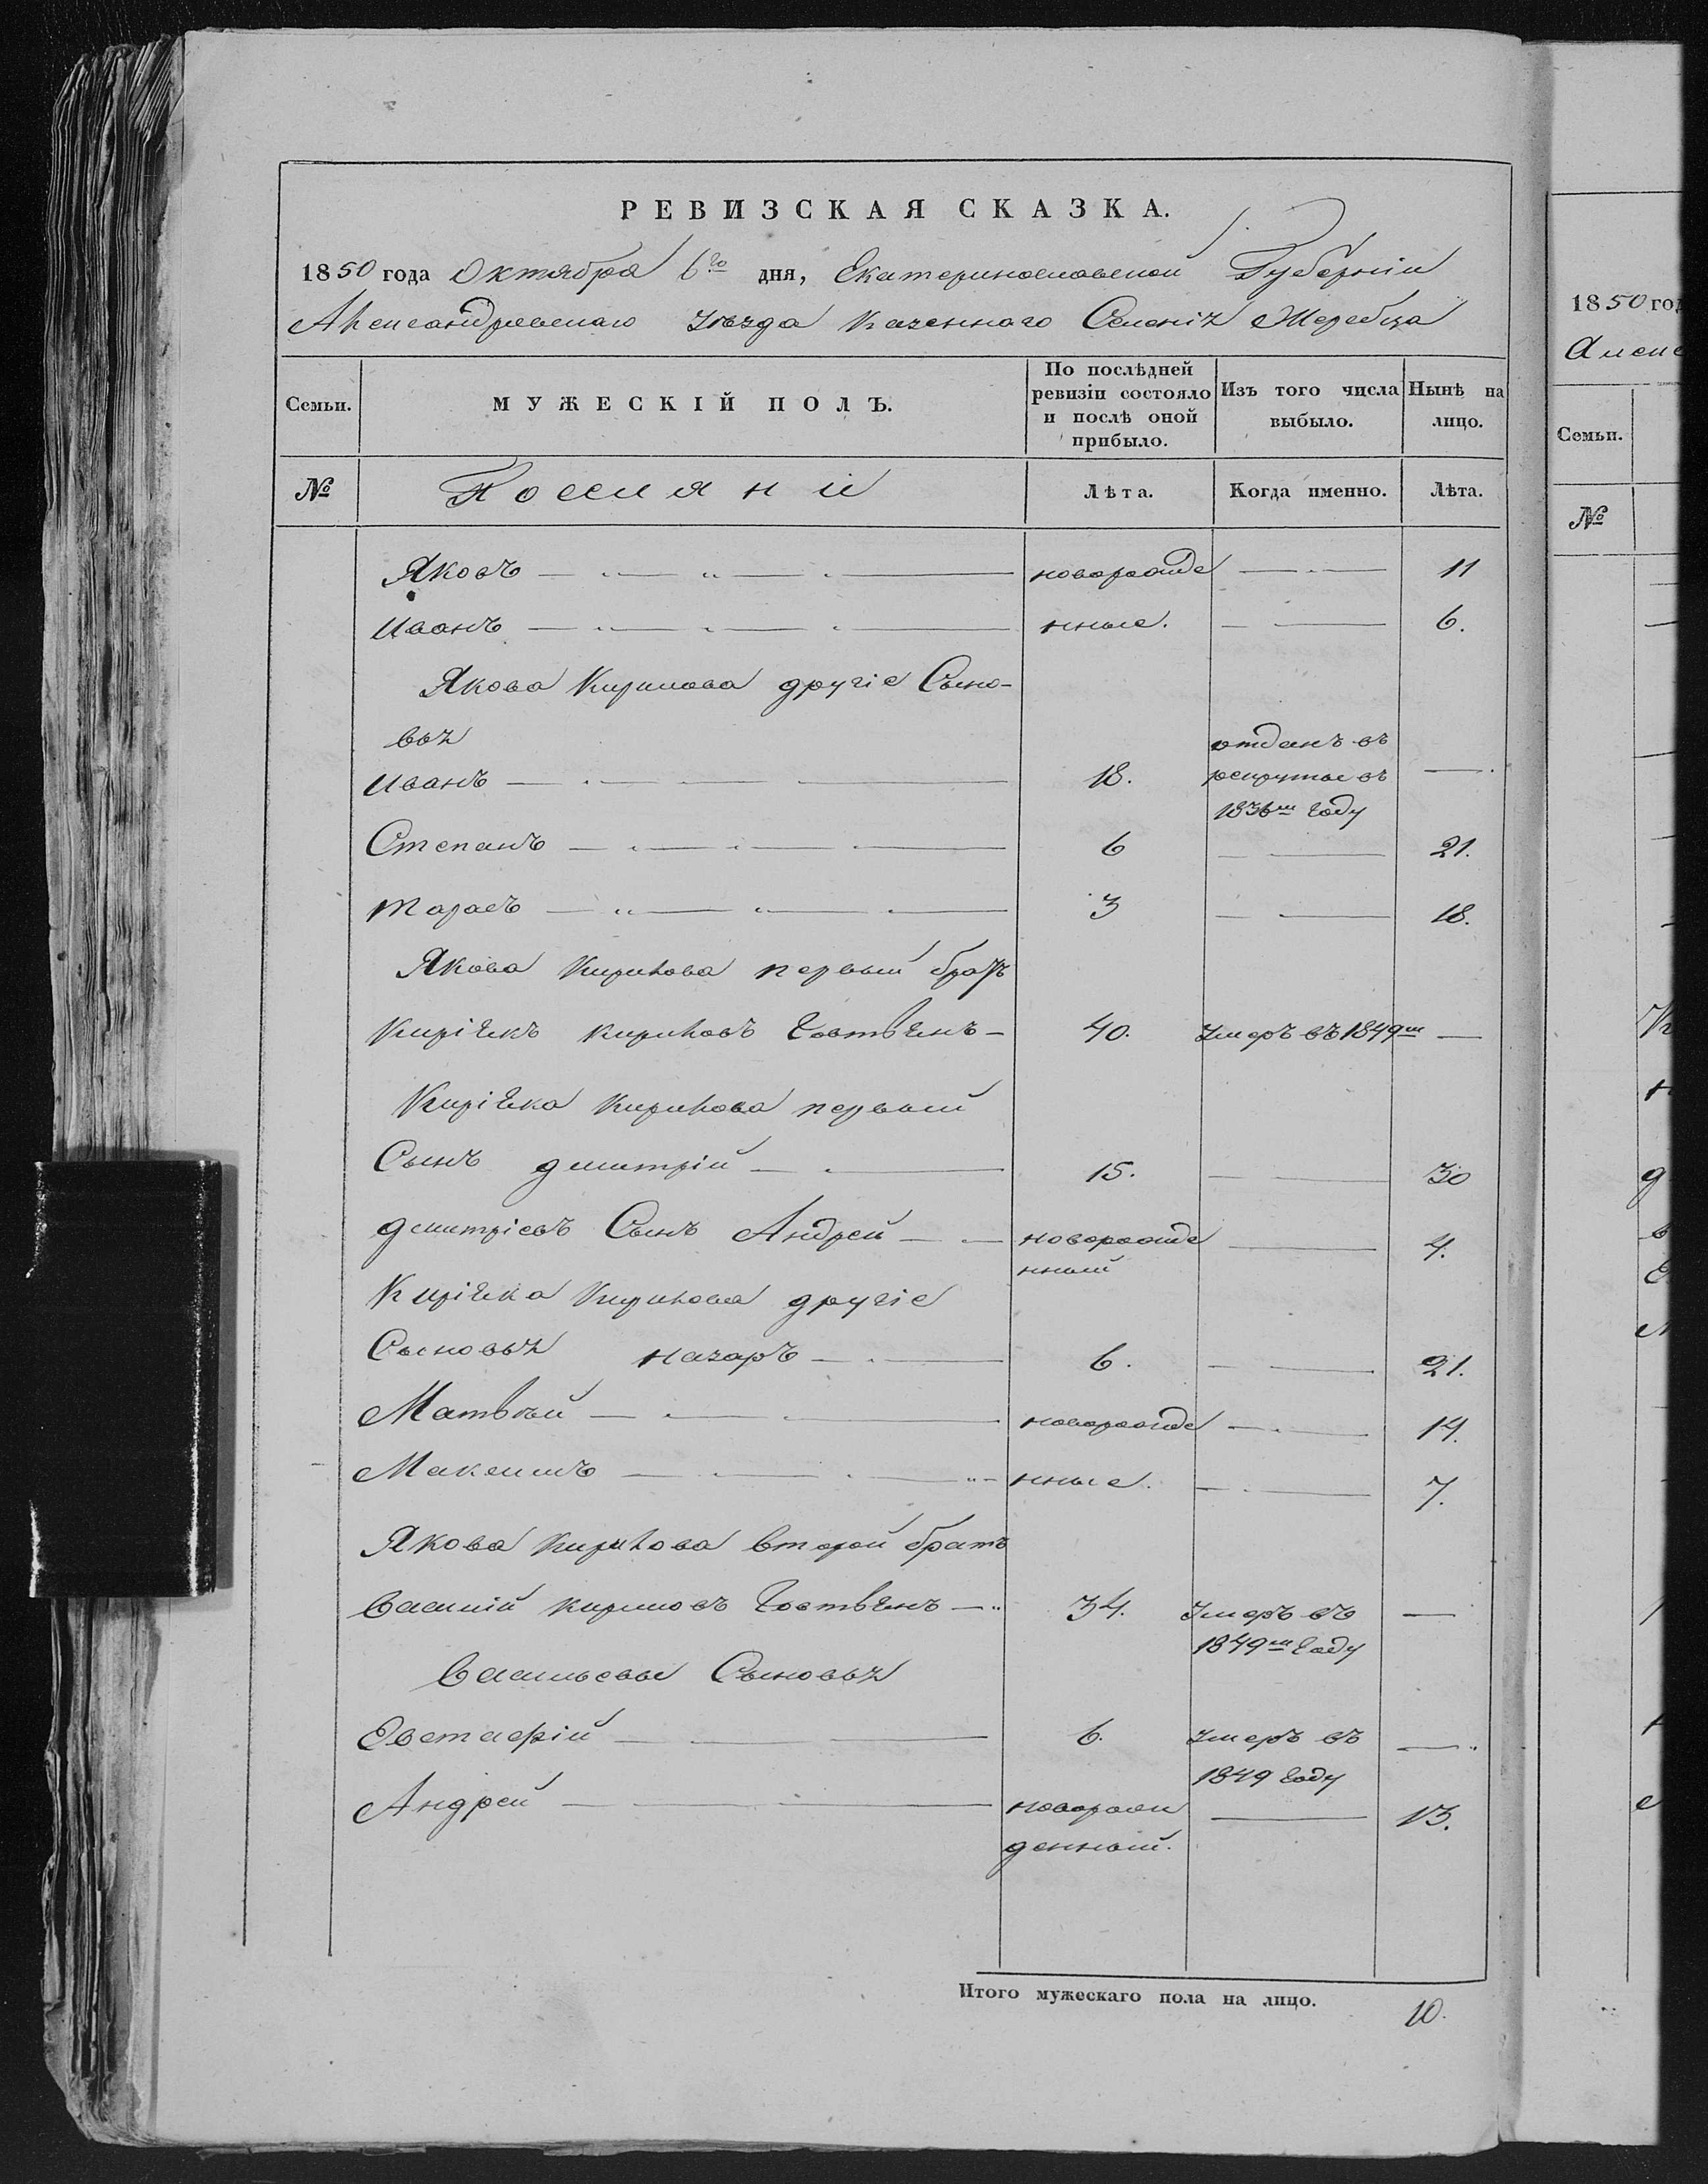 РЕВИЗСКАЯ СКАЗКА.
1850 года Октября 6го дня, Екатеринославской Губерніи
Александровскаго Уѣзда Казеннаго Селенія Жеребца
Семьи. МУЖЕСКІЙ ПОЛЪ. По послѣдней ревизіи состояло и послѣ оной прибыло. Изъ того числа выбыло. Нынѣ на лицо.
№ Поселяни Лѣта. Когда именно. Лѣта.
Яковъ новорожде 11
Иванъ нные. 6.
Якова Кирилова другіе Сыно-
вья
Иванъ 18. отданъ въ рекруты въ 1836м Году
Степанъ 6 21.
Тарасъ 3 18.
Якова Кирилова первый братъ
Кирікъ Кириловъ 40. Умеръ въ 1849м
Киріка Кирилова первый
Сынъ Дмитрій 15. 30
Дмитріевъ Сынъ Андрей новорожде нный 4.
Киріка Кирилова другіе
Сыновья Назаръ 6. 21.
Матвѣй новорожде 14.
Максимъ нные. 7.
Якова Кирилова второй братъ
Василій Кириловъ 34. Умеръ въ 1849м Году
Васильевы Сыновья
Евстафій 6. Умеръ въ 1849 Году
Андрей новорож денный. 13.
Итого мужескаго пола на лицо. 10.
1850 год
Семьи.
№